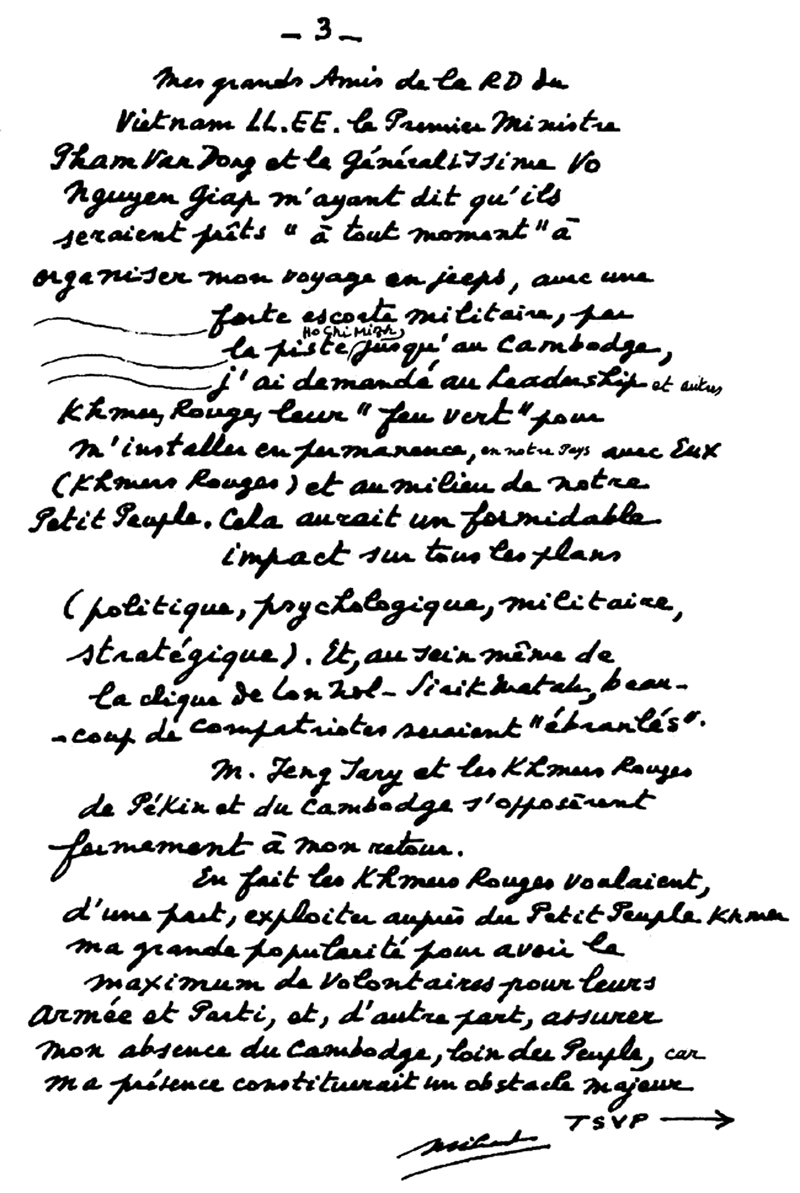 - 3 -
Mes grands Amis de la RD du
Vietnam LL.EE. le Premier Ministre
Pham Van Dong et le Généralissime Vo
Nguyen Giap m'ayant dit qu'ils
seraient prêts "à tout moment" à
organiser mon voyage en jeeps, avec une
forte escorte militaire, par
la piste Ho Chi Minh, jusqu'au Cambodge,
j'ai demandé au Leadership et autres
Khmers Rouges leur "feu vert" pour
m'installer en permanence, en notre Pays avec Eux
(Khmers Rouges) et au milieu de notre
Petit Peuple. Cela aurait un formidable
impact sur tous les plans
(politique, psychologique, militaire,
stratégique). Et, au sein même de
la clique de Lon Nol - Sirik Matak, beau-
-coup de compatriotes seraient "ébranlés".
M. Ieng Sary et les Khmers Rouges
de Pékin et du Cambodge s'opposèrent
fermement à mon retour.
En fait les Khmers Rouges voulaient,
d'une part, exploiter auprès du Petit Peuple Khmer
ma grande popularité pour avoir le
maximum de volontaires pour leurs
Armée et Parti, et, d'autre part, assurer
mon absence du Cambodge, loin du Peuple, car
ma présence constituerait un obstacle majeur
TSVP →